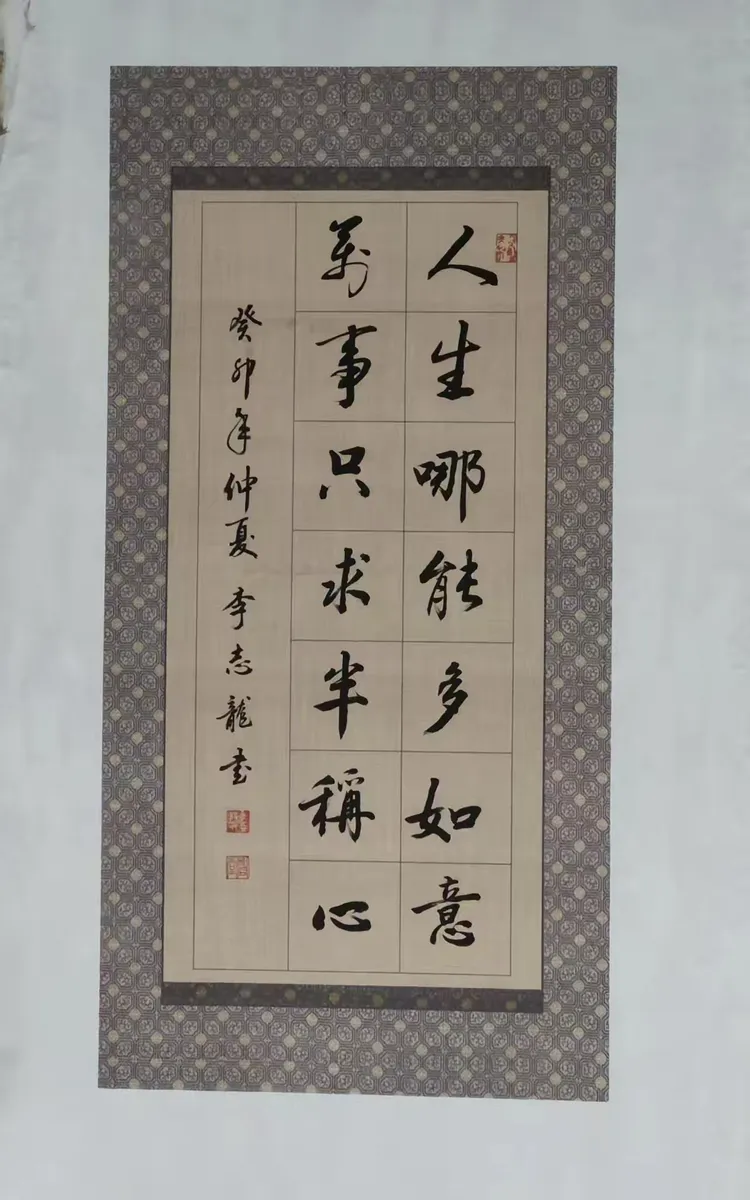 人生哪能多如意
萬事只求半稱心
癸卯年仲夏 李志龍书